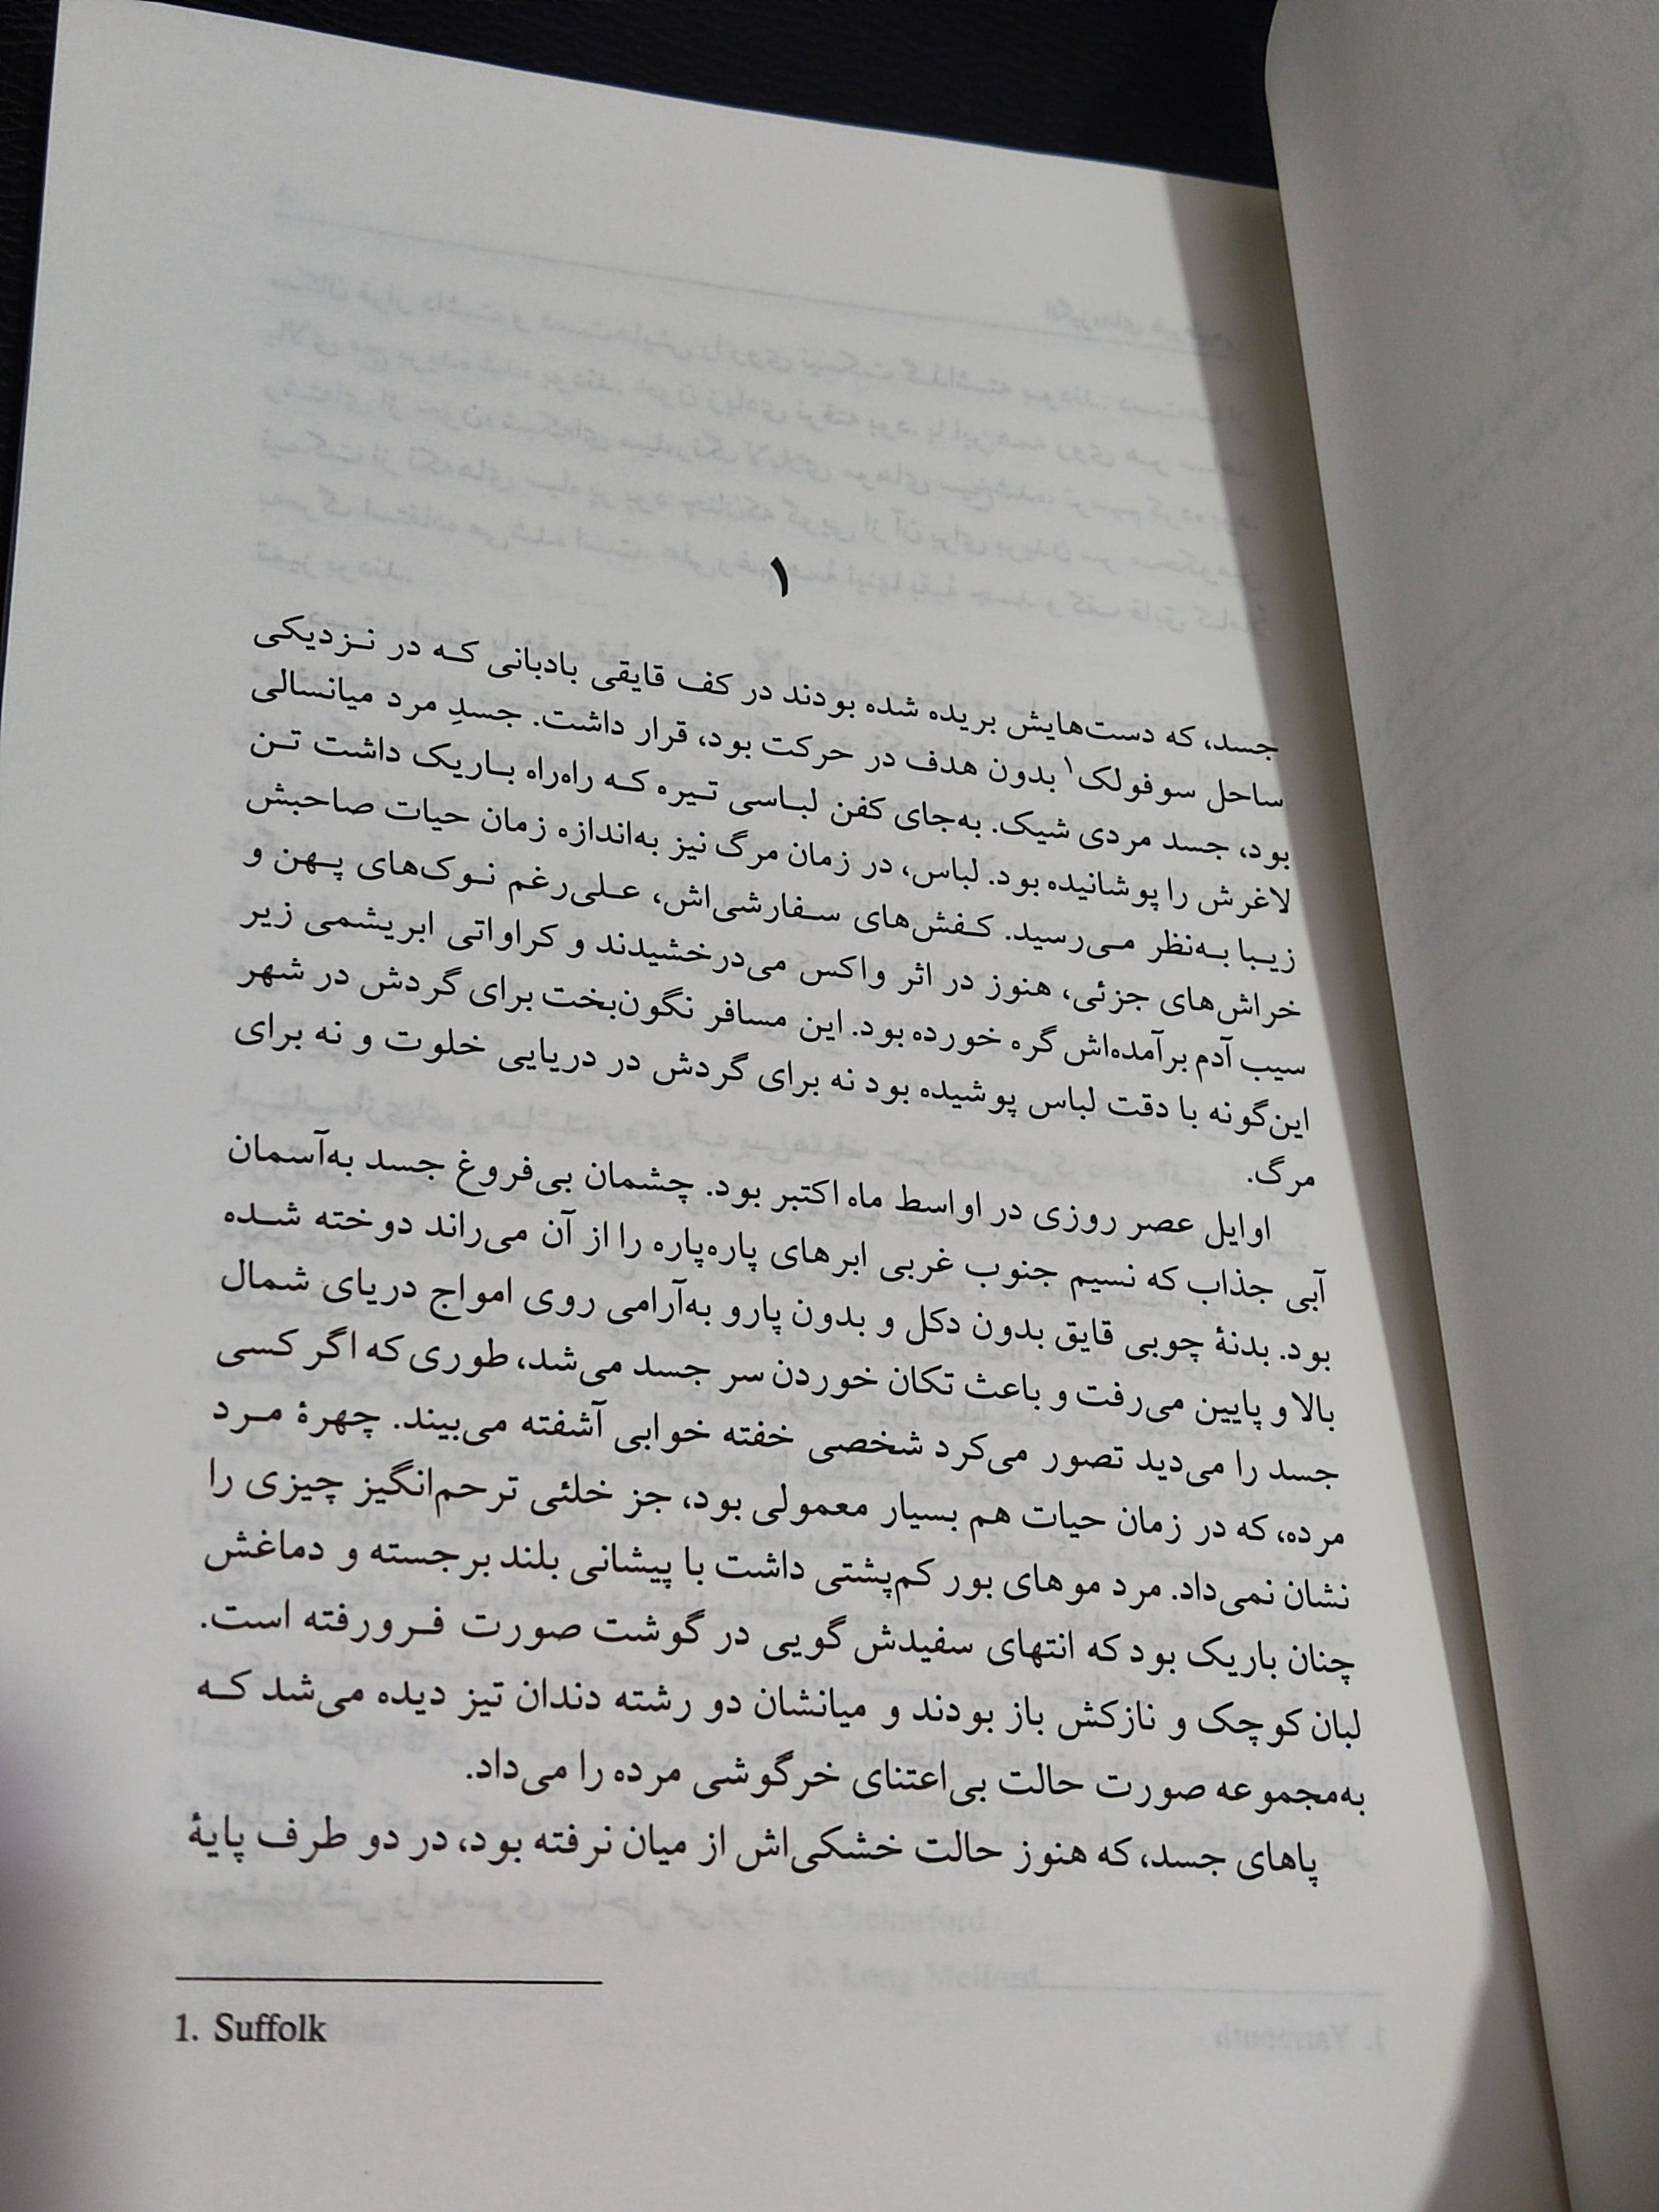 ۱
جسد، که دست‌هایش بریده شده بودند در کف قایقی بادبانی که در نزدیکی
ساحل سوفولک۱ بدون هدف در حرکت بود، قرار داشت. جسدِ مرد میانسالی
بود، جسد مردی شیک. به‌جای کفن لباسی تیره که راه‌راه باریک داشت تن
لاغرش را پوشانیده بود. لباس، در زمان مرگ نیز به‌اندازه زمان حیات صاحبش
زیبا به‌نظر می‌رسید. کفش‌های سفارشی‌اش، علی‌رغم نوک‌های پهن و
خراش‌های جزئی، هنوز در اثر واکس می‌درخشیدند و کراواتی ابریشمی زیر
سیب آدم برآمده‌اش گره خورده بود. این مسافر نگون‌بخت برای گردش در شهر
این‌گونه با دقت لباس پوشیده بود نه برای گردش در دریایی خلوت و نه برای
مرگ.
اوایل عصر روزی در اواسط ماه اکتبر بود. چشمان بی‌فروغ جسد به‌آسمان
آبی جذاب که نسیم جنوب غربی ابرهای پاره‌پاره را از آن می‌راند دوخته شده
بود. بدنهٔ چوبی قایق بدون دکل و بدون پارو به‌آرامی روی امواج دریای شمال
بالا و پایین می‌رفت و باعث تکان خوردن سر جسد می‌شد، طوری که اگر کسی
جسد را می‌دید تصور می‌کرد شخصی خفته خوابی آشفته می‌بیند. چهرهٔ مرد
مرده، که در زمان حیات هم بسیار معمولی بود، جز خلئی ترحم‌انگیز چیزی را
نشان نمی‌داد. مرد موهای بور کم‌پشتی داشت با پیشانی بلند برجسته و دماغش
چنان باریک بود که انتهای سفیدش گویی در گوشت صورت فرورفته است.
لبان کوچک و نازکش باز بودند و میانشان دو رشته دندان تیز دیده می‌شد که
به‌مجموعه صورت حالت بی‌اعتنای خرگوشی مرده را می‌داد.
پاهای جسد، که هنوز حالت خشکی‌اش از میان نرفته بود، در دو طرف پایهٔ
1. Suffolk